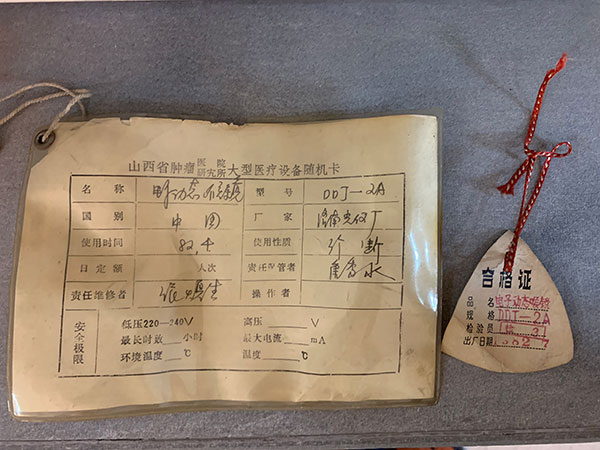 山西省肿瘤医院研究所大型医疗设备随机卡
名称 型号 DDJ-2A
国别 中国 厂家
使用时间 82.7 使用性质 诊断
日定额 人次 责任保管者
责任维修者 操作者
安全极限
低压220—240V 高压 V
最长时放 小时 最大电流 mA
环境温度 ℃ 温度 ℃
合格证
品名 电子动态
规格 DDJ-2A
检验员 检 31
出厂日期 1982 7